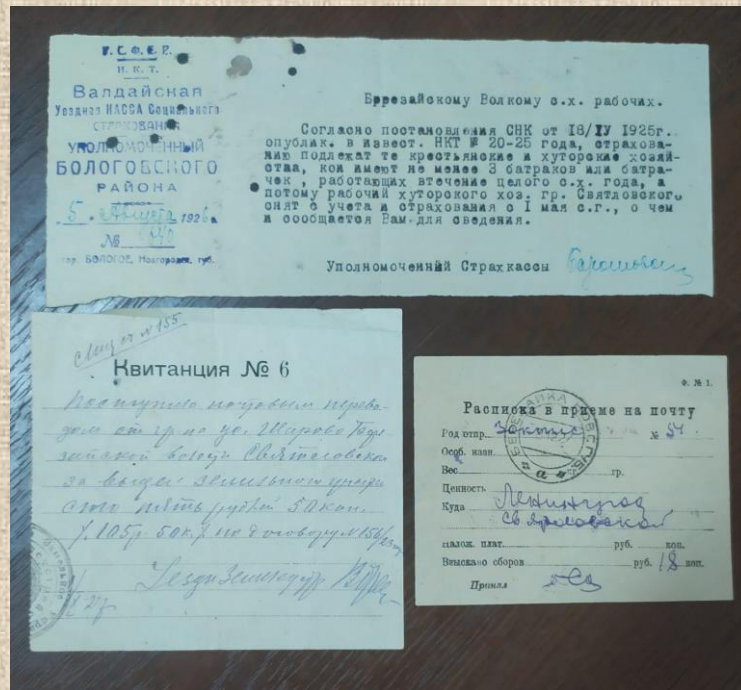 Р.С.Ф.С.Р.
Н. К. Т.
Валдайская
Уездная КАССА Социального
СТРАХОВАНИЯ
УПОЛНОМОЧЕННЫЙ
БОЛОГОВСКОГО
РАЙОНА
5 Августа 1926г.
№
гор. БОЛОГОЕ, Новгородск. губ.
Березайскому Волкому с.х. рабочих.
Согласно постановления СНК от 18/IУ 1925г.
опублик. в извест. НКТ № 20-25 года, страхова-
нию подлежат те крестьянские и хуторские хозяй-
ства, кои имеют не менее 3 батраков или батра-
чек , работающих втечение целого с.х. года, а
потому рабочий хуторского хоз. гр. Святловского
снят с учета и страхования с I мая с.г., о чем
и сообщается Вам для сведения.
Уполномоченный Страхкассы
№ 155
Квитанция № 6
Поступило почтовым перево-
дом от гр-на
волости
за выдел земельного
сто пять рублей 50 коп.
/105р. 50к./ по договору № 156/
Ф. № 1.
Расписка в приеме на почту
Род отпр. Заказное № 54
Особ. назн.
Вес гр.
Ценность
Куда Ленинград
Святловской
налож. плат. руб. коп.
Взыскано сборов руб. 18 коп.
Принял
БЕРЕЗАЙКА НОВГ. ГУБ.